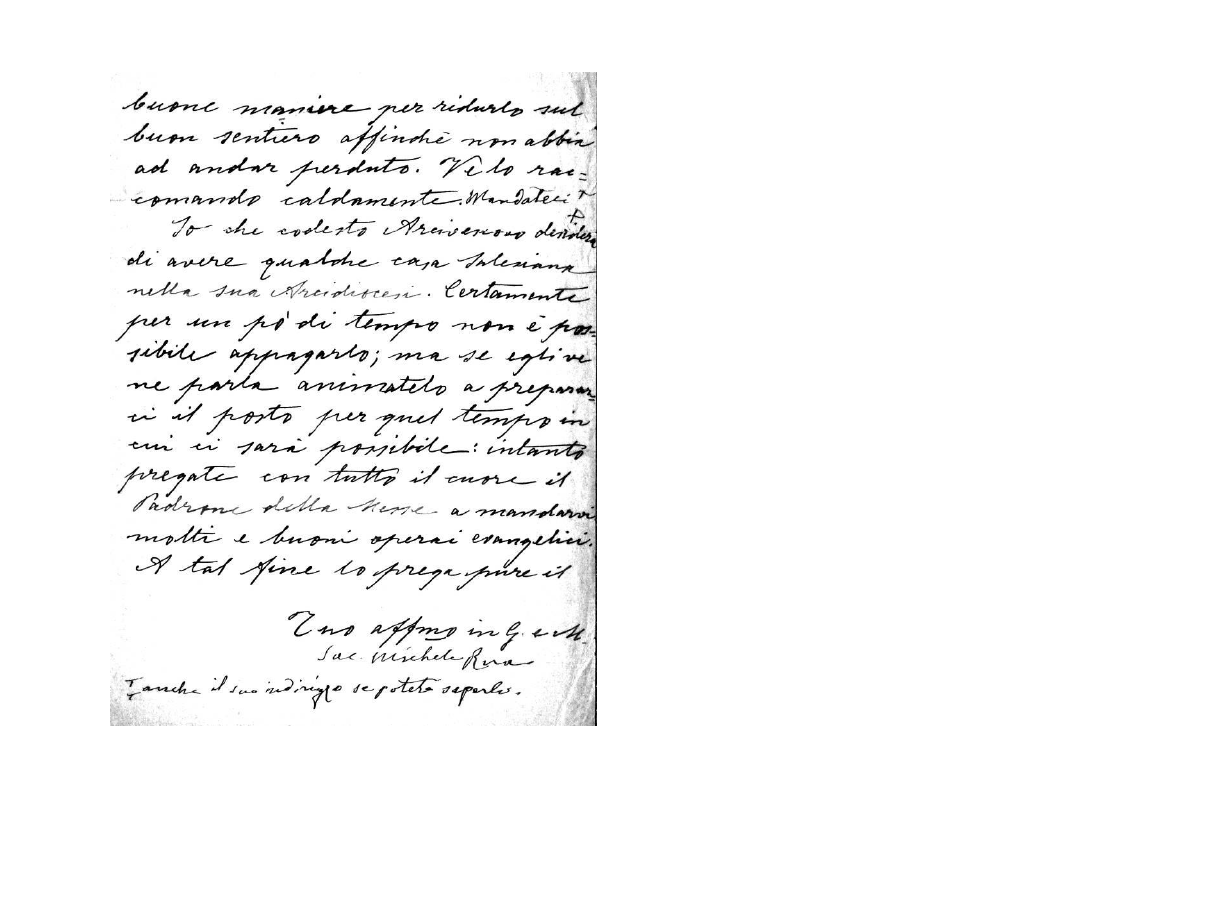 buone maniere per ridurlo sul
buon sentiero affinchè non abbia
ad andar perduto. Ve lo rac=
comando caldamente. Mandateci
So che codesto Arcivescovo desidera
di avere qualche casa Salesiana
nella sua Arcidiocesi. Certamente
per un pò di tempo non è pos=
sibile appagarlo; ma se egli ve
ne parla animatelo a preparar=
ci il posto per quel tempo in
cui ci sarà possibile: intanto
pregate con tutto il cuore il
Padrone della Messe a mandarvi
molti e buoni operai evangelici.
A tal fine lo prega pure il
Tuo affmo in G. e M.
Sac. Michele Rua
anche il suo indirizzo se potete saperlo.